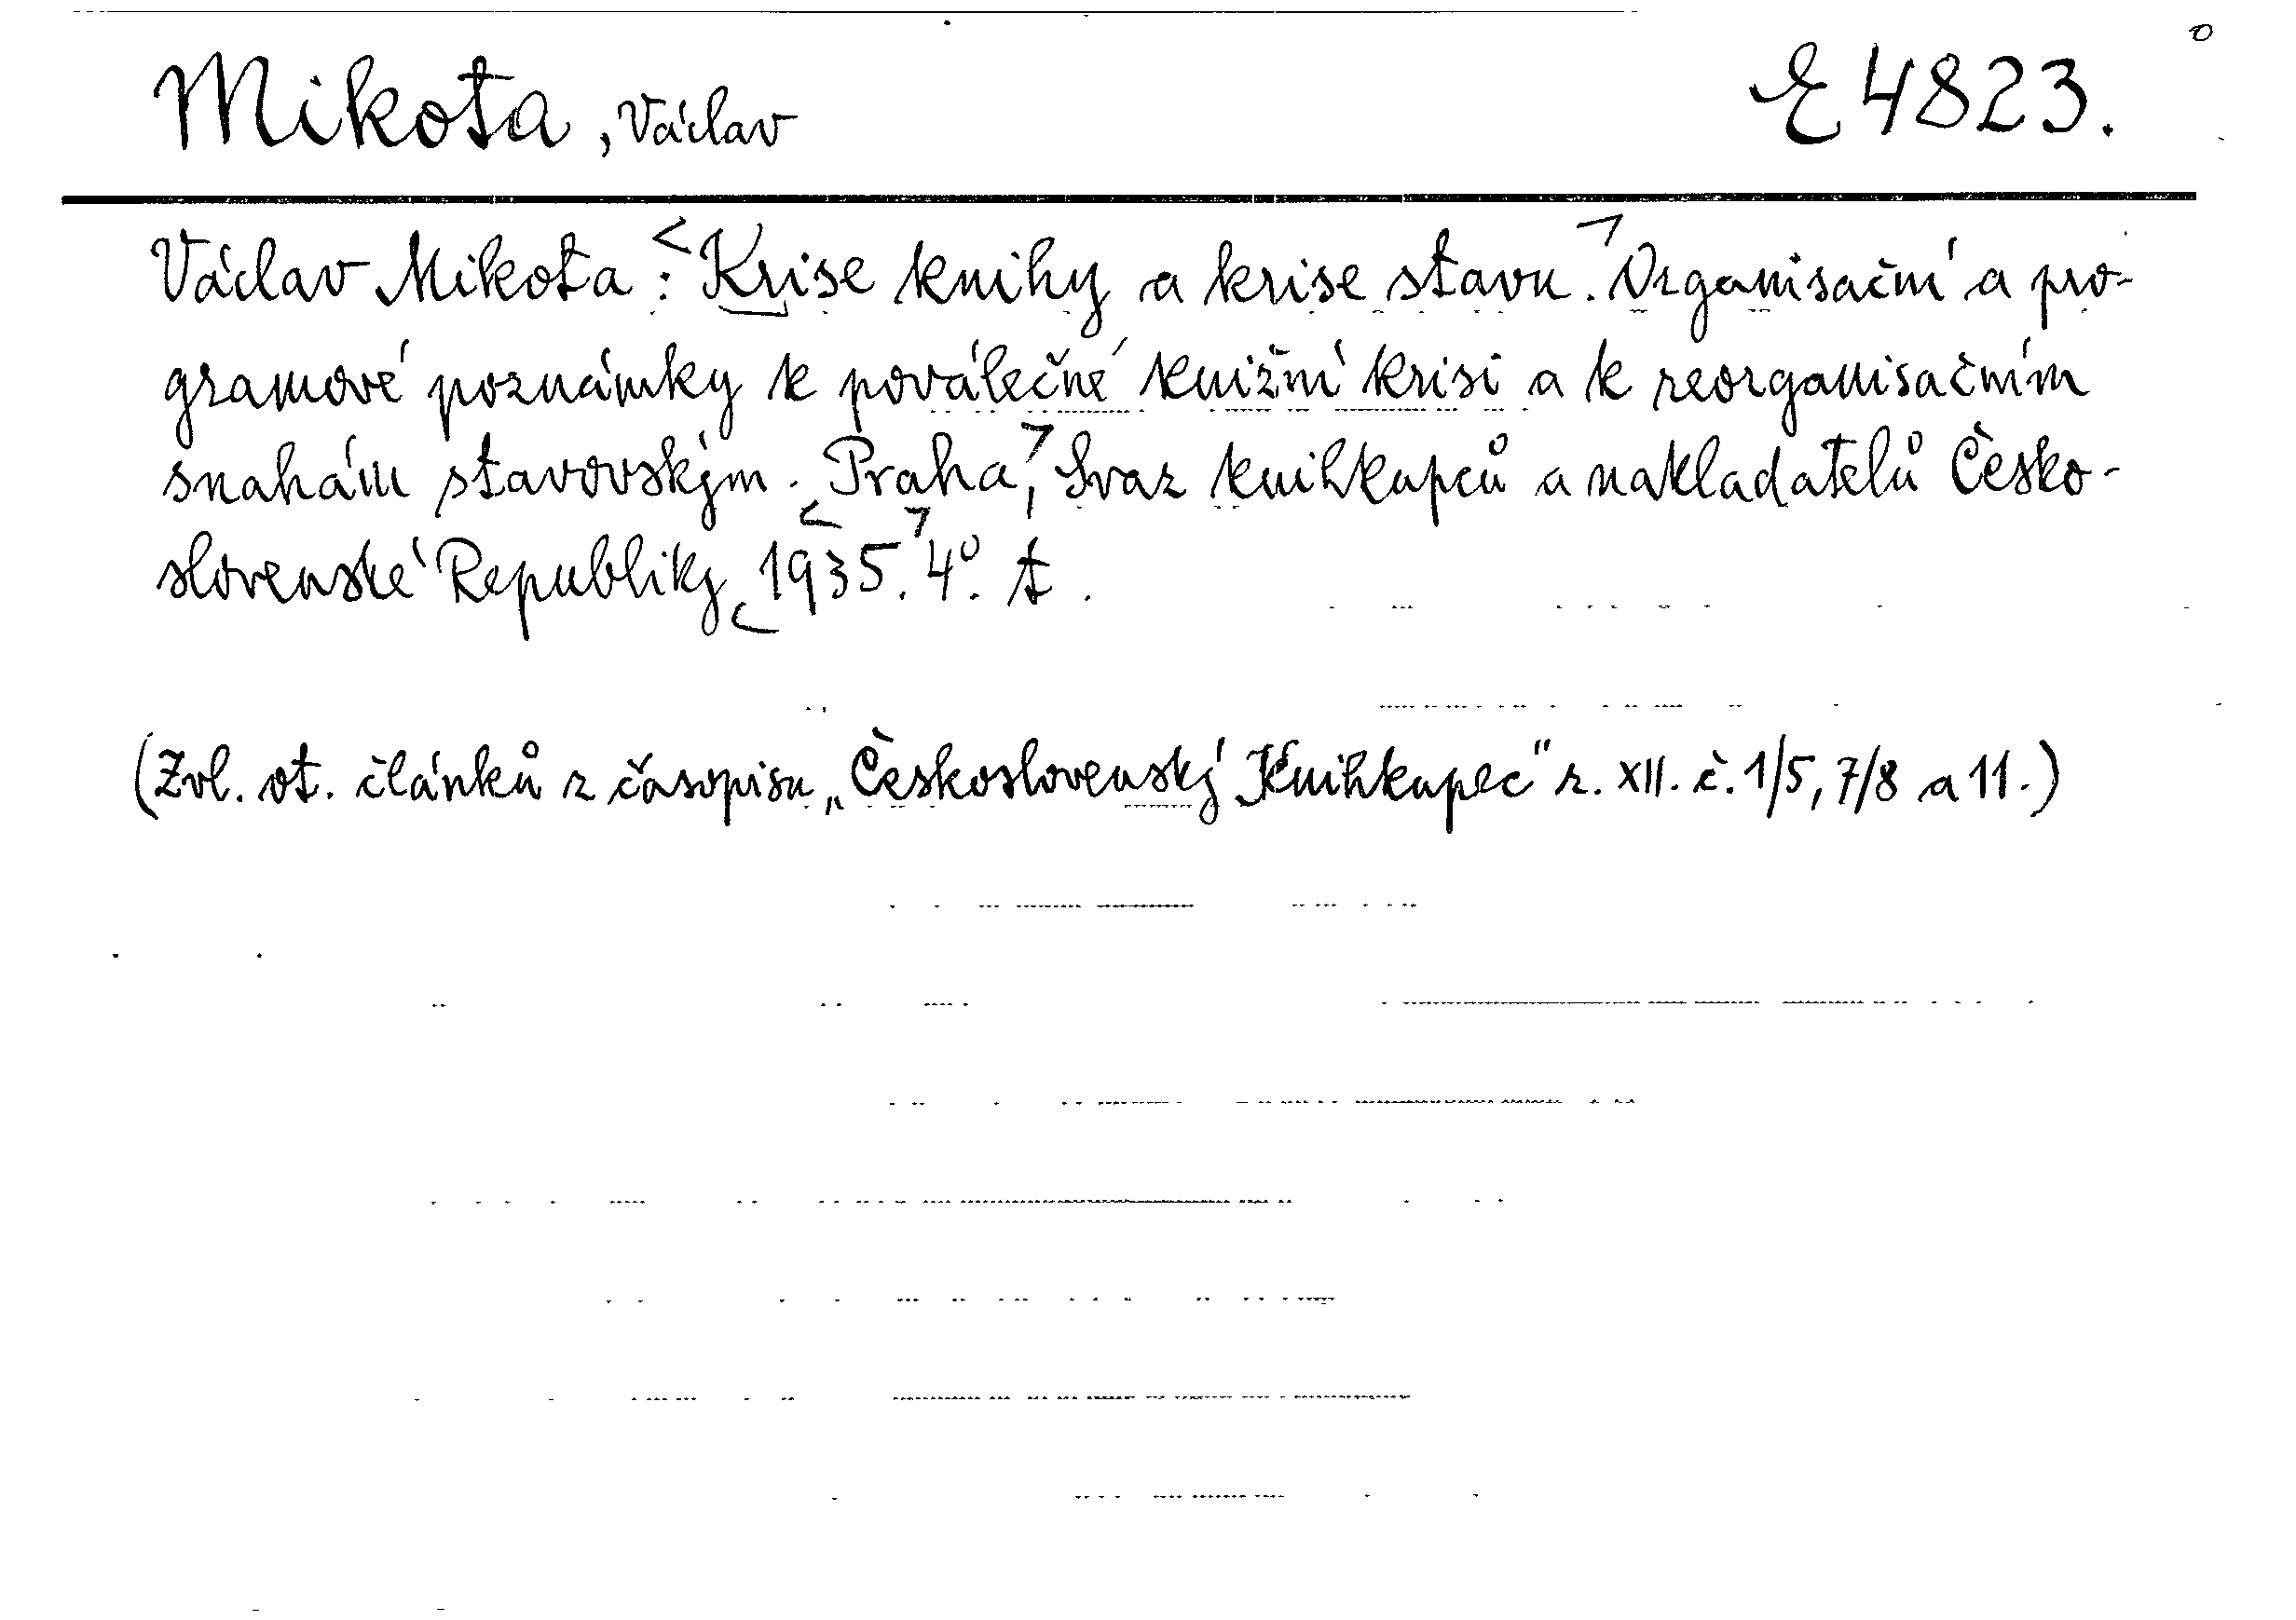 Mikota, Václav E 4823.
Václav Mikota: <Krise knihy a krise stavu.> Organisační a pro-
gramové poznámky k poválečné knižní krisi a k reorganisačním
snahám stavovským. <Praha,> Svaz knihkupců a nakladatelů Česko-
slovenské Republiky <1935.> 4°. t.
(Zvl. ot. článků z časopisu „Československý Knihkupec" r. XII. č. 1/5, 7/8 a 11.)